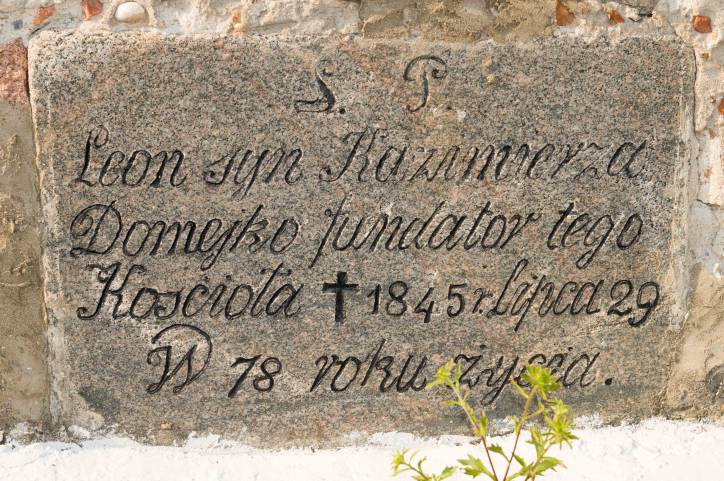 Ś. P.
Leon syn Kazimierza
Domejko fundator tego
Kościoła ✝ 1845 r. Lipca 29
W 78 roku życia.